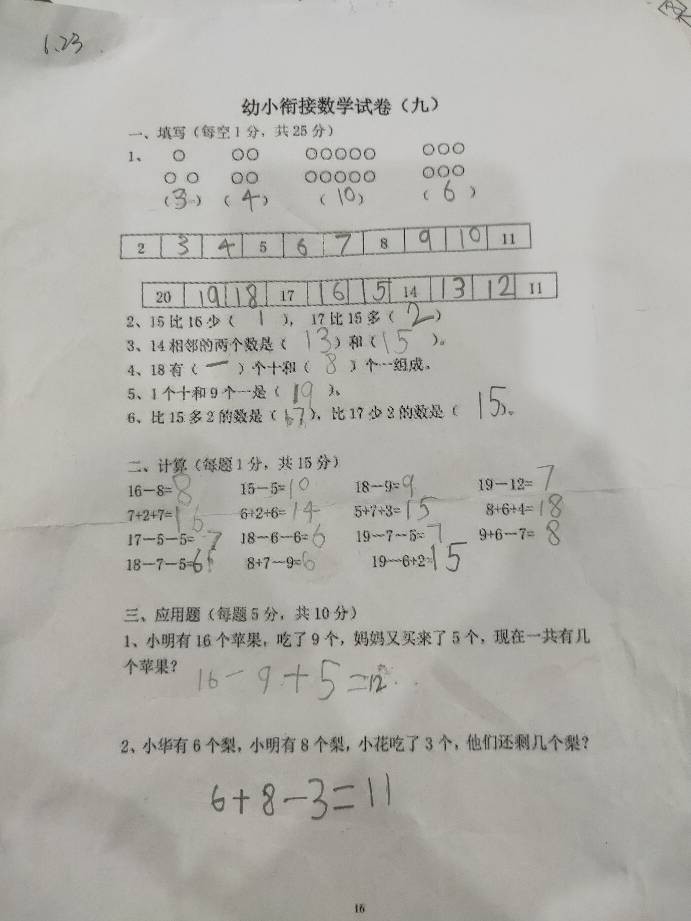 6.23
幼小衔接数学试卷（九）
一、填写（每空1分，共25分）
1、 ○ ○○ ○○○○○ ○○○
○ ○ ○○ ○○○○○ ○○○
（3） （4） （10） （6）
2 3 4 5 6 7 8 9 10 11
20 19 18 17 16 15 14 13 12 11
2、15比16少（1）， 17比15多（2）
3、14相邻的两个数是（13）和（15）。
4、18有（一）个十和（8）个一组成。
5、1个十和9个一是（19）。
6、比15多2的数是（17），比17少2的数是（15）。
二、计算（每题1分，共15分）
16－8=8 15－5=10 18－9=9 19－12=7
7+2+7=16 6+2+6=14 5+7+3=15 8+6+4=18
17－5－5=7 18－6－6=6 19－7－5=7 9+6－7=8
18－7－5=6 8+7－9=6 19－6+2=15
三、应用题（每题5分，共10分）
1、小明有16个苹果，吃了9个，妈妈又买来了5个，现在一共有几
个苹果？
16－9+5=12
2、小华有6个梨，小明有8个梨，小花吃了3个，他们还剩几个梨？
6+8－3=11
16